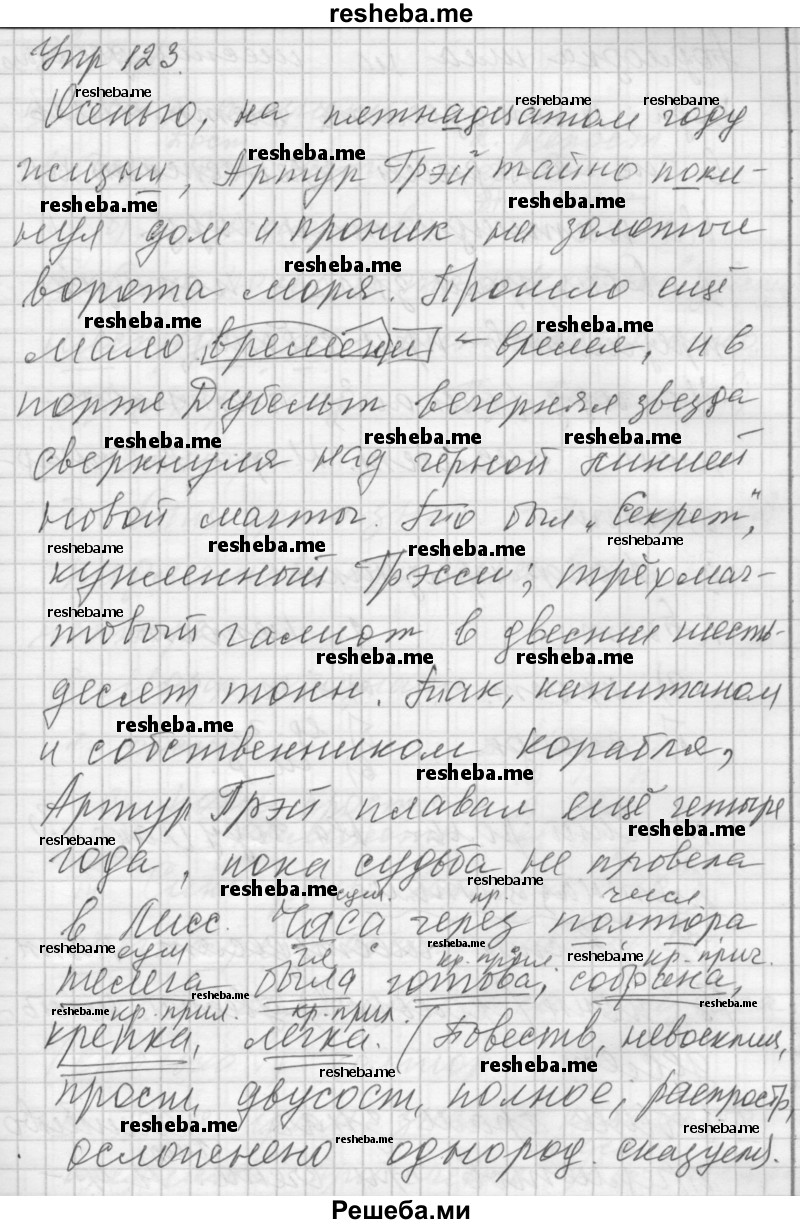 resheba.me
Упр 123.
resheba.me resheba.me resheba.me
Осенью, на пятнадцатом году
resheba.me
жизни, Артур Грэй тайно поки-
resheba.me resheba.me
нул дом и проник на золотые
resheba.me
ворота моря. Прошло ещё
resheba.me resheba.me
мало времени - время, и в
порте Дубельт вечерняя звезда
resheba.me resheba.me resheba.me
сверкнула над чёрной линией
новой мачты. Это был „Секрет",
resheba.me resheba.me resheba.me resheba.me
купленный Грэем; трёхмач-
resheba.me
товый галиот в двести шесть-
resheba.me resheba.me
десят тонн. Так, капитаном
resheba.me
и собственником корабля,
resheba.me
Артур Грэй плавал ещё четыре
resheba.me resheba.me
года, пока судьба не провела
resheba.me resheba.me
сущ. пр. числ
в Лисс. Часа через полтора
resheba.me resheba.me resheba.me
сущ гл кр. прил кр. прич.
телега была готова, собрана,
resheba.me resheba.me resheba.me
кр. прил. кр. прил.
крепка, легка. (Повеств, невосклиц,
resheba.me resheba.me
прост, двусост, полное, распростр,
resheba.me resheba.me resheba.me
осложенено однород. сказуем).
Решеба.ми